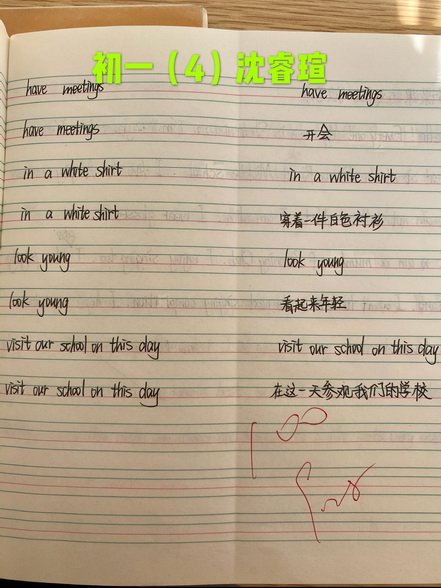 初一（4）沈睿瑄
have meetings have meetings
have meetings 开会
in a white shirt in a white shirt
in a white shirt 穿着一件白色衬衫
look young look young
look young 看起来年轻
visit our school on this day visit our school on this day
visit our school on this day 在这一天参观我们的学校
100